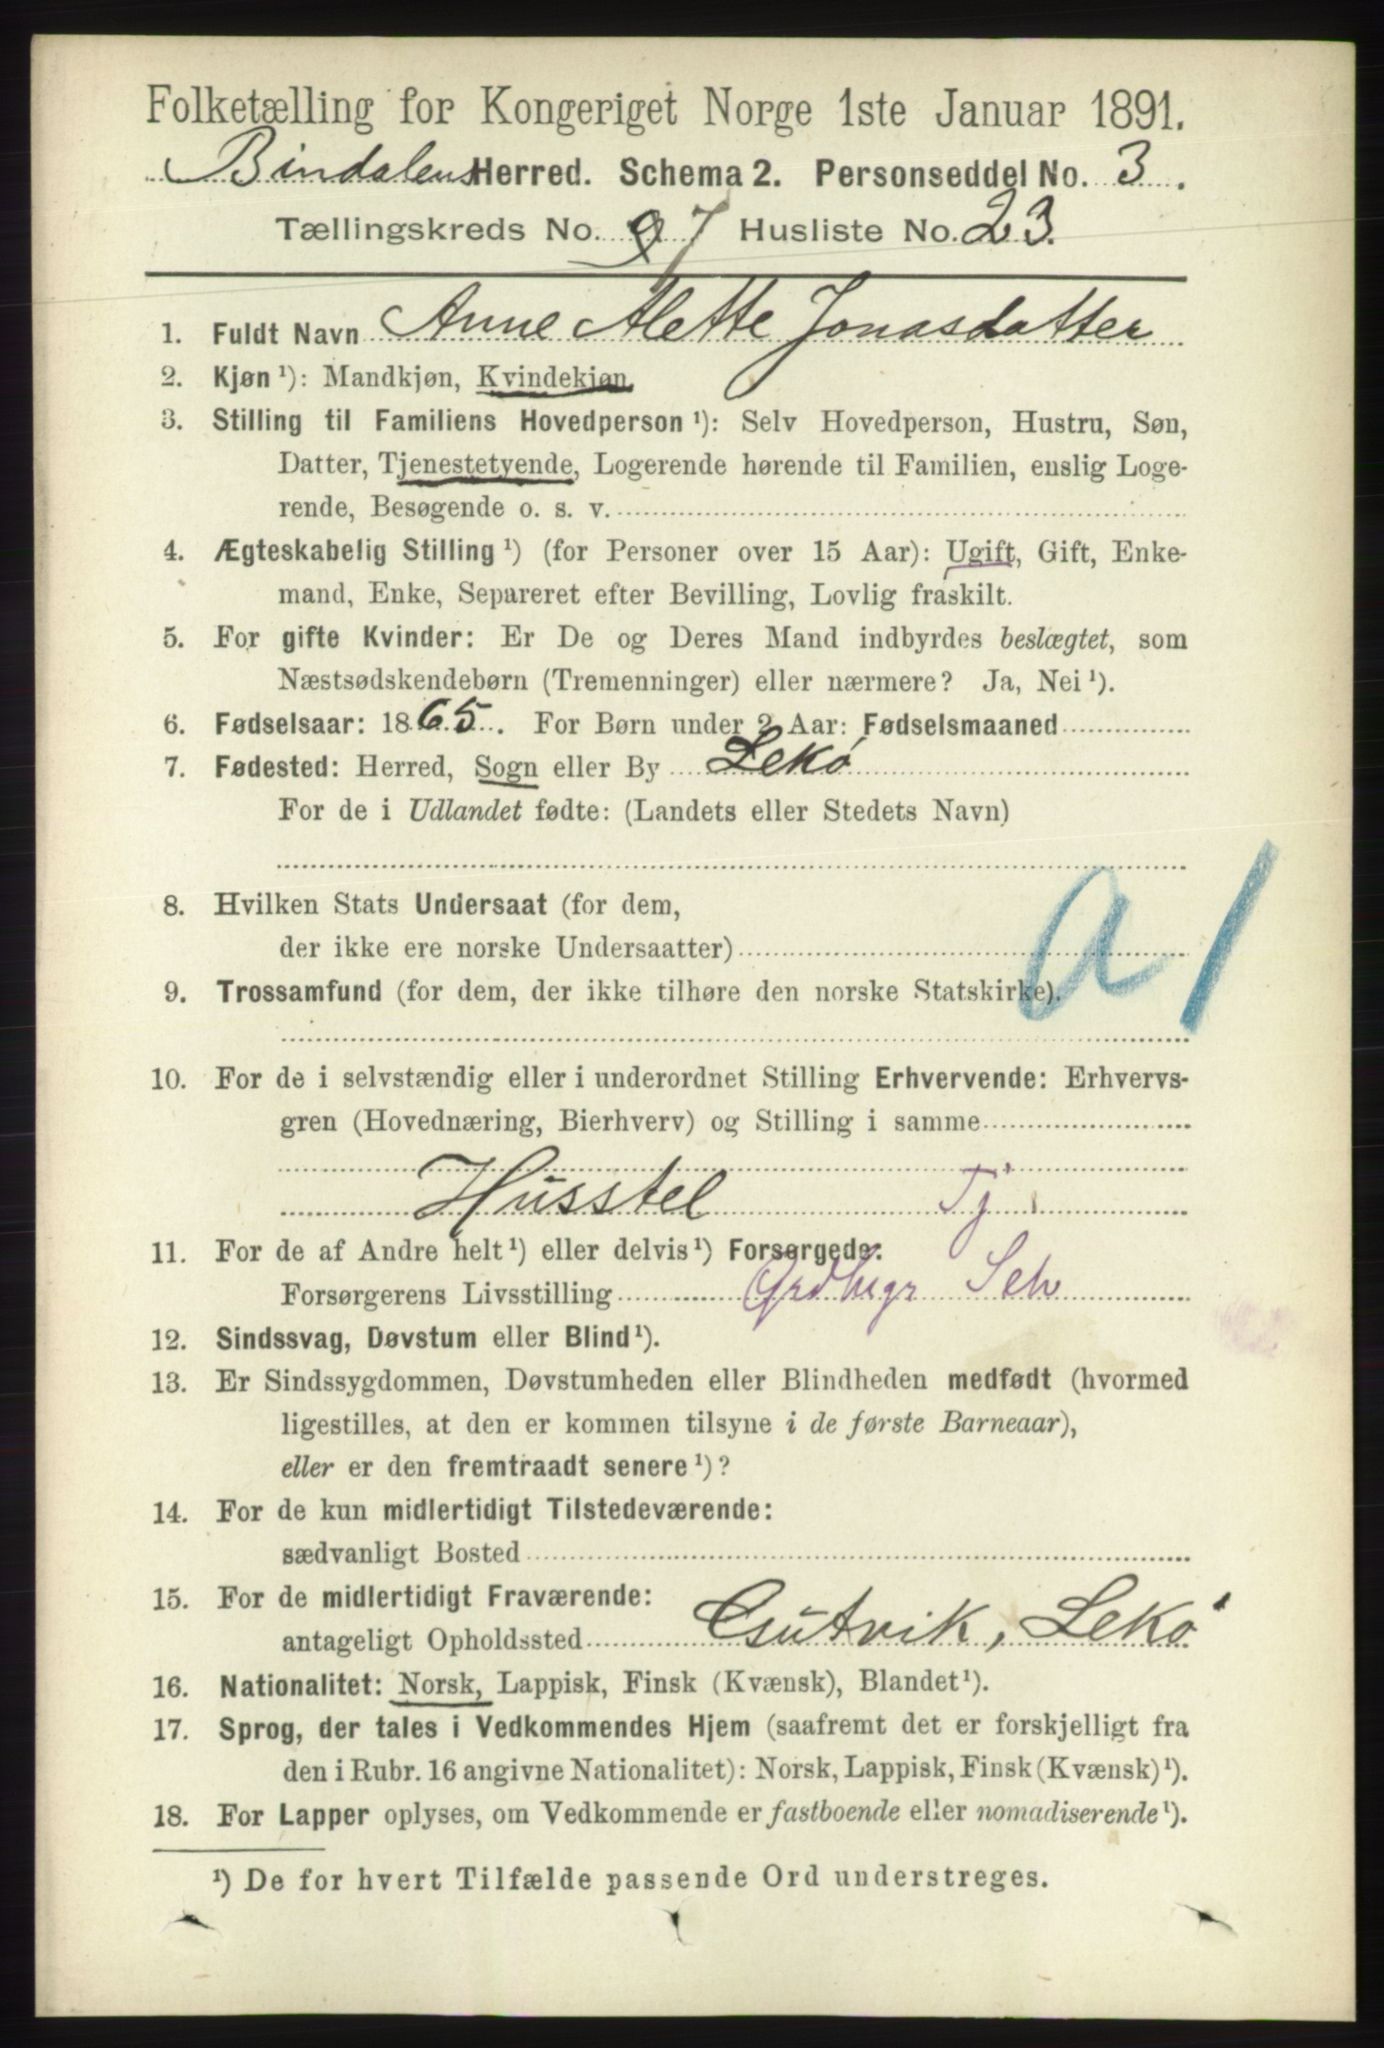 Folketælling for Kongeriget Norge 1ste Januar 1891.
Bindalens Herred. Schema 2. Personseddel No. 3.
Tællingskreds No. 7 Husliste No. 23.
1. Fuldt Navn Anne Alette Jonasdatter
2. Kjøn ¹): Mandkjøn, Kvindekjøn.
3. Stilling til Familiens Hovedperson ¹): Selv Hovedperson, Hustru, Søn,
Datter, Tjenestetyende, Logerende hørende til Familien, enslig Loge-
rende, Besøgende o. s. v.
4. Ægteskabelig Stilling ¹) (for Personer over 15 Aar): Ugift, Gift, Enke-
mand, Enke, Separeret efter Bevilling, Lovlig fraskilt.
5. For gifte Kvinder: Er De og Deres Mand indbyrdes beslægtet, som
Næstsødskendebørn (Tremenninger) eller nærmere? Ja, Nei ¹).
6. Fødselsaar: 1865. For Børn under 2 Aar: Fødselsmaaned
7. Fødested: Herred, Sogn eller By Lekø
For de i Udlandet fødte: (Landets eller Stedets Navn)
8. Hvilken Stats Undersaat (for dem,
der ikke ere norske Undersaatter)
a 1
9. Trossamfund (for dem, der ikke tilhøre den norske Statskirke).
10. For de i selvstændig eller i underordnet Stilling Erhvervende: Erhvervs-
gren (Hovednæring, Bierhverv) og Stilling i samme
Husstel Tj
11. For de af Andre helt ¹) eller delvis ¹) Forsørgede:
Forsørgerens Livsstilling Selv
12. Sindssvag, Døvstum eller Blind ¹).
13. Er Sindssygdommen, Døvstumheden eller Blindheden medfødt (hvormed
ligestilles, at den er kommen tilsyne i de første Barneaar),
eller er den fremtraadt senere ¹)?
14. For de kun midlertidigt Tilstedeværende:
sædvanligt Bosted
15. For de midlertidigt Fraværende:
antageligt Opholdssted Gutvik, Lekø
16. Nationalitet: Norsk, Lappisk, Finsk (Kvænsk), Blandet ¹).
17. Sprog, der tales i Vedkommendes Hjem (saafremt det er forskjelligt fra
den i Rubr. 16 angivne Nationalitet): Norsk, Lappisk, Finsk (Kvænsk) ¹).
18. For Lapper oplyses, om Vedkommende er fastboende eller nomadiserende ¹).
¹) De for hvert Tilfælde passende Ord understreges.